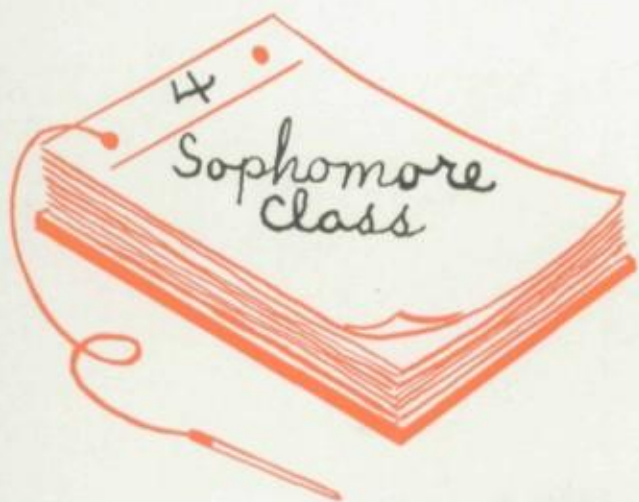 4
Sophomore
Class